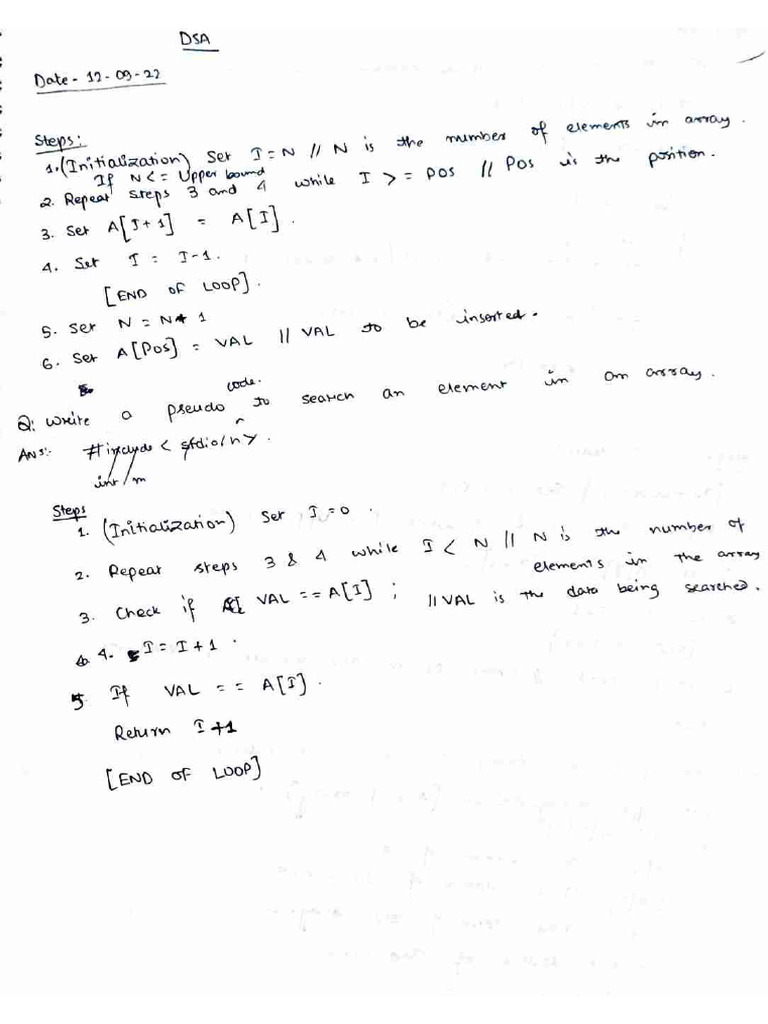 DSA
Date - 12-09-22
Steps:
1. (Initialization) Set I = N // N is the number of elements in array.
If N <= Upper bound
2. Repeat steps 3 and 4 while I >= POS // POS is the position.
3. Set A[I+1] = A[I].
4. Set I = I-1.
[END OF LOOP].
5. Set N = N+1
6. Set A[POS] = VAL // VAL to be inserted.
Q: Write a pseudo code. to search an element in an array.
Ans:- #include < stdio/h>.
int m
Steps
1. (Initialization) Set I = 0.
2. Repeat steps 3 & 4 while I < N // N is the number of
elements in the array
3. Check if VAL == A[I] ; // VAL is the data being searched.
4. I = I+1.
5 If VAL == A[I].
Return I+1
[END OF LOOP]